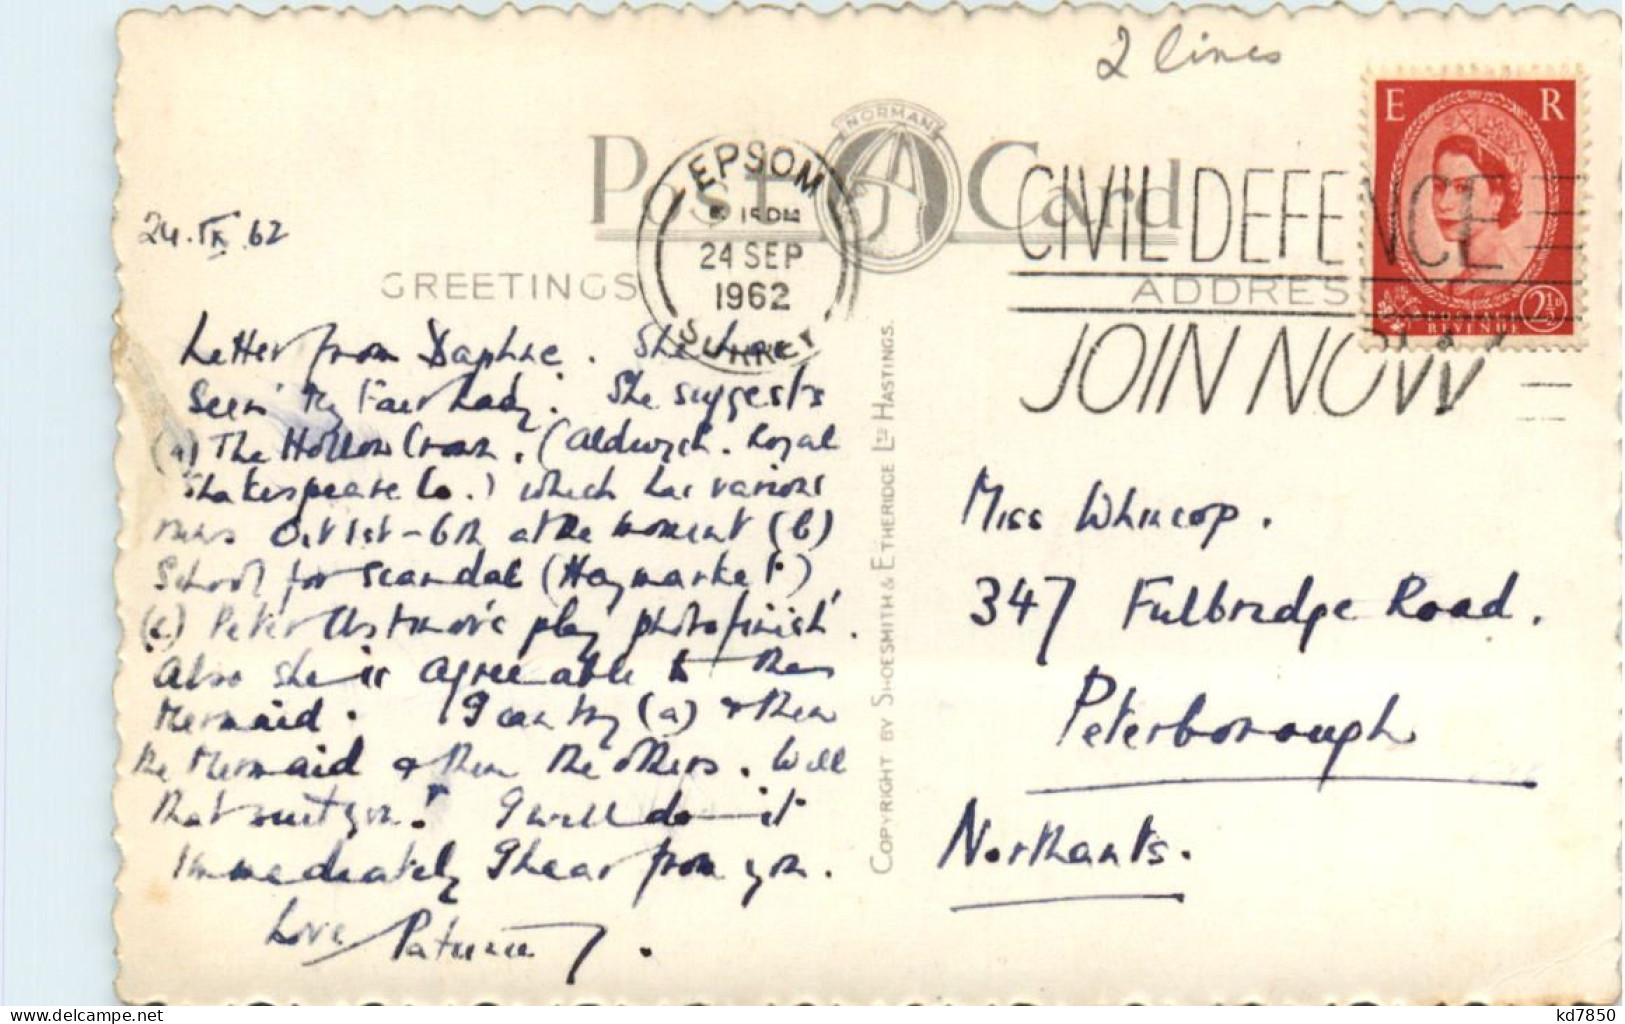 2 lines
E R
NORMAN
Post Card
EPSOM
5 15 PM
24 SEP
1962
SURREY
CIVIL DEFENCE
JOIN NOW
POSTAGE
REVENUE
2½D
24.IX.62
GREETINGS
ADDRESS
Letter from Daphne. She has
seen 'My Fair Lady'. She suggests
(a) The Hollow Crown, (Aldwych. Royal
Shakespeare Co.) which has various
runs Oct 1st – 6th at the moment (b)
School for Scandal (Haymarket),
(c) Peter Ustinov's play 'photofinish'.
Also she is agreeable to the
Mermaid. I can try (a) & then
the Mermaid & then the others. Will
that suit you? I will do it
immediately I hear from you.
Love
COPYRIGHT BY SHOESMITH & ETHERIDGE LTD HASTINGS.
Miss Whincop.
347 Fulbridge Road.
Peterborough
Northants.
kd7850
delcampe.net